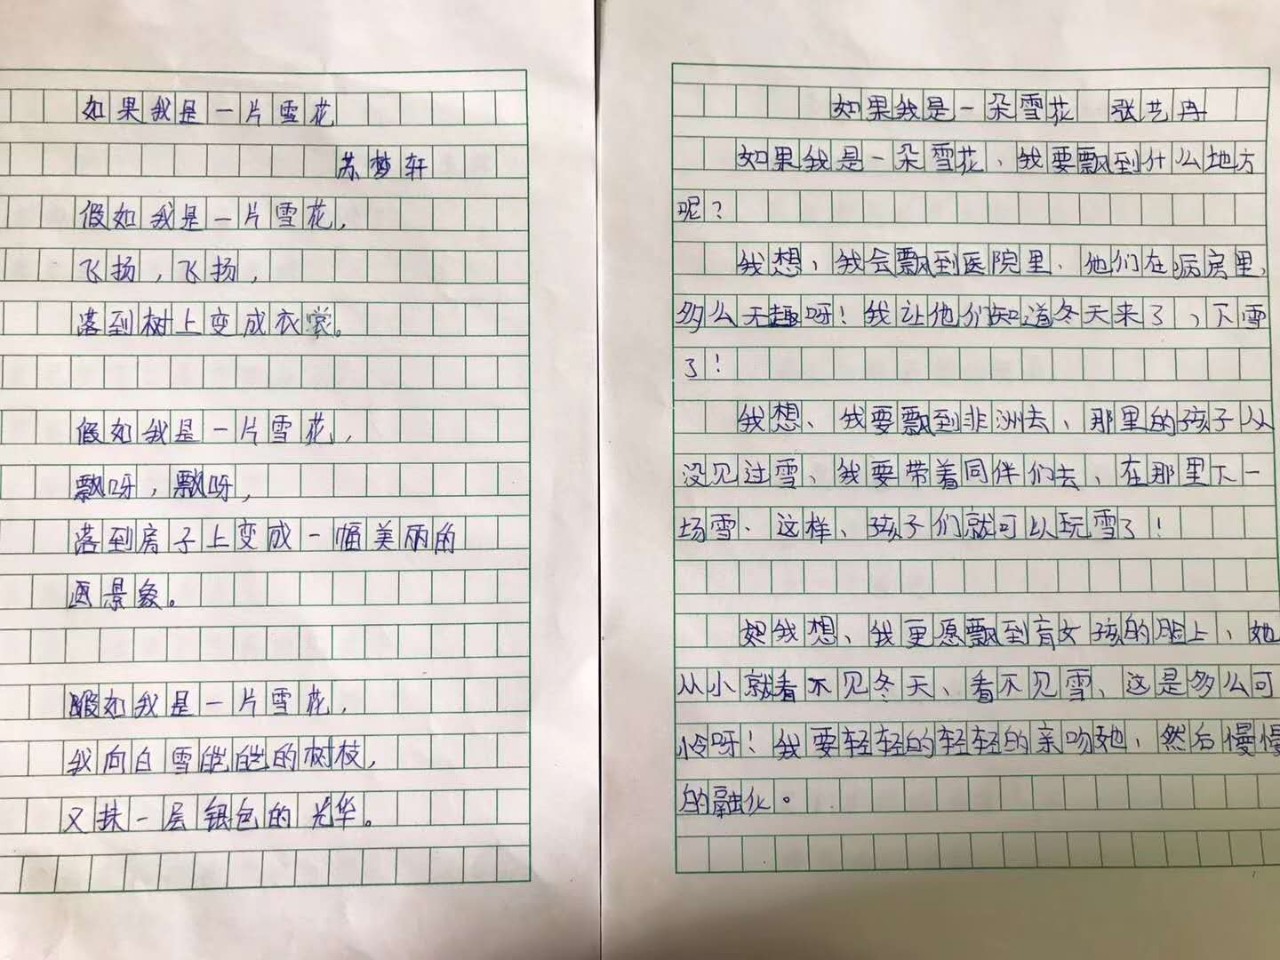 如果我是一片雪花
苏梦轩
假如我是一片雪花,
飞扬,飞扬,
落到树上变成衣裳。
假如我是一片雪花,
飘呀,飘呀,
落到房子上变成一幅美丽的
画景象。
假如我是一片雪花,
我向白雪皑皑的树枝,
又抹一层银色的光华。
如果我是一朵雪花 张艺冉
如果我是一朵雪花、我要飘到什么地方
呢?
我想、我会飘到医院里、他们在病房里,
多么无趣呀!我让他们知道冬天来了、下雪
了!
我想、我要飘到非洲去、那里的孩子从
没见过雪、我要带着同伴们去、在那里下一
场雪、这样、孩子们就可以玩雪了!
我想、我更愿飘到盲女孩的脸上、她
从小就看不见冬天、看不见雪、这是多么可
怜呀!我要轻轻的轻轻的亲吻她、然后慢慢
的融化。